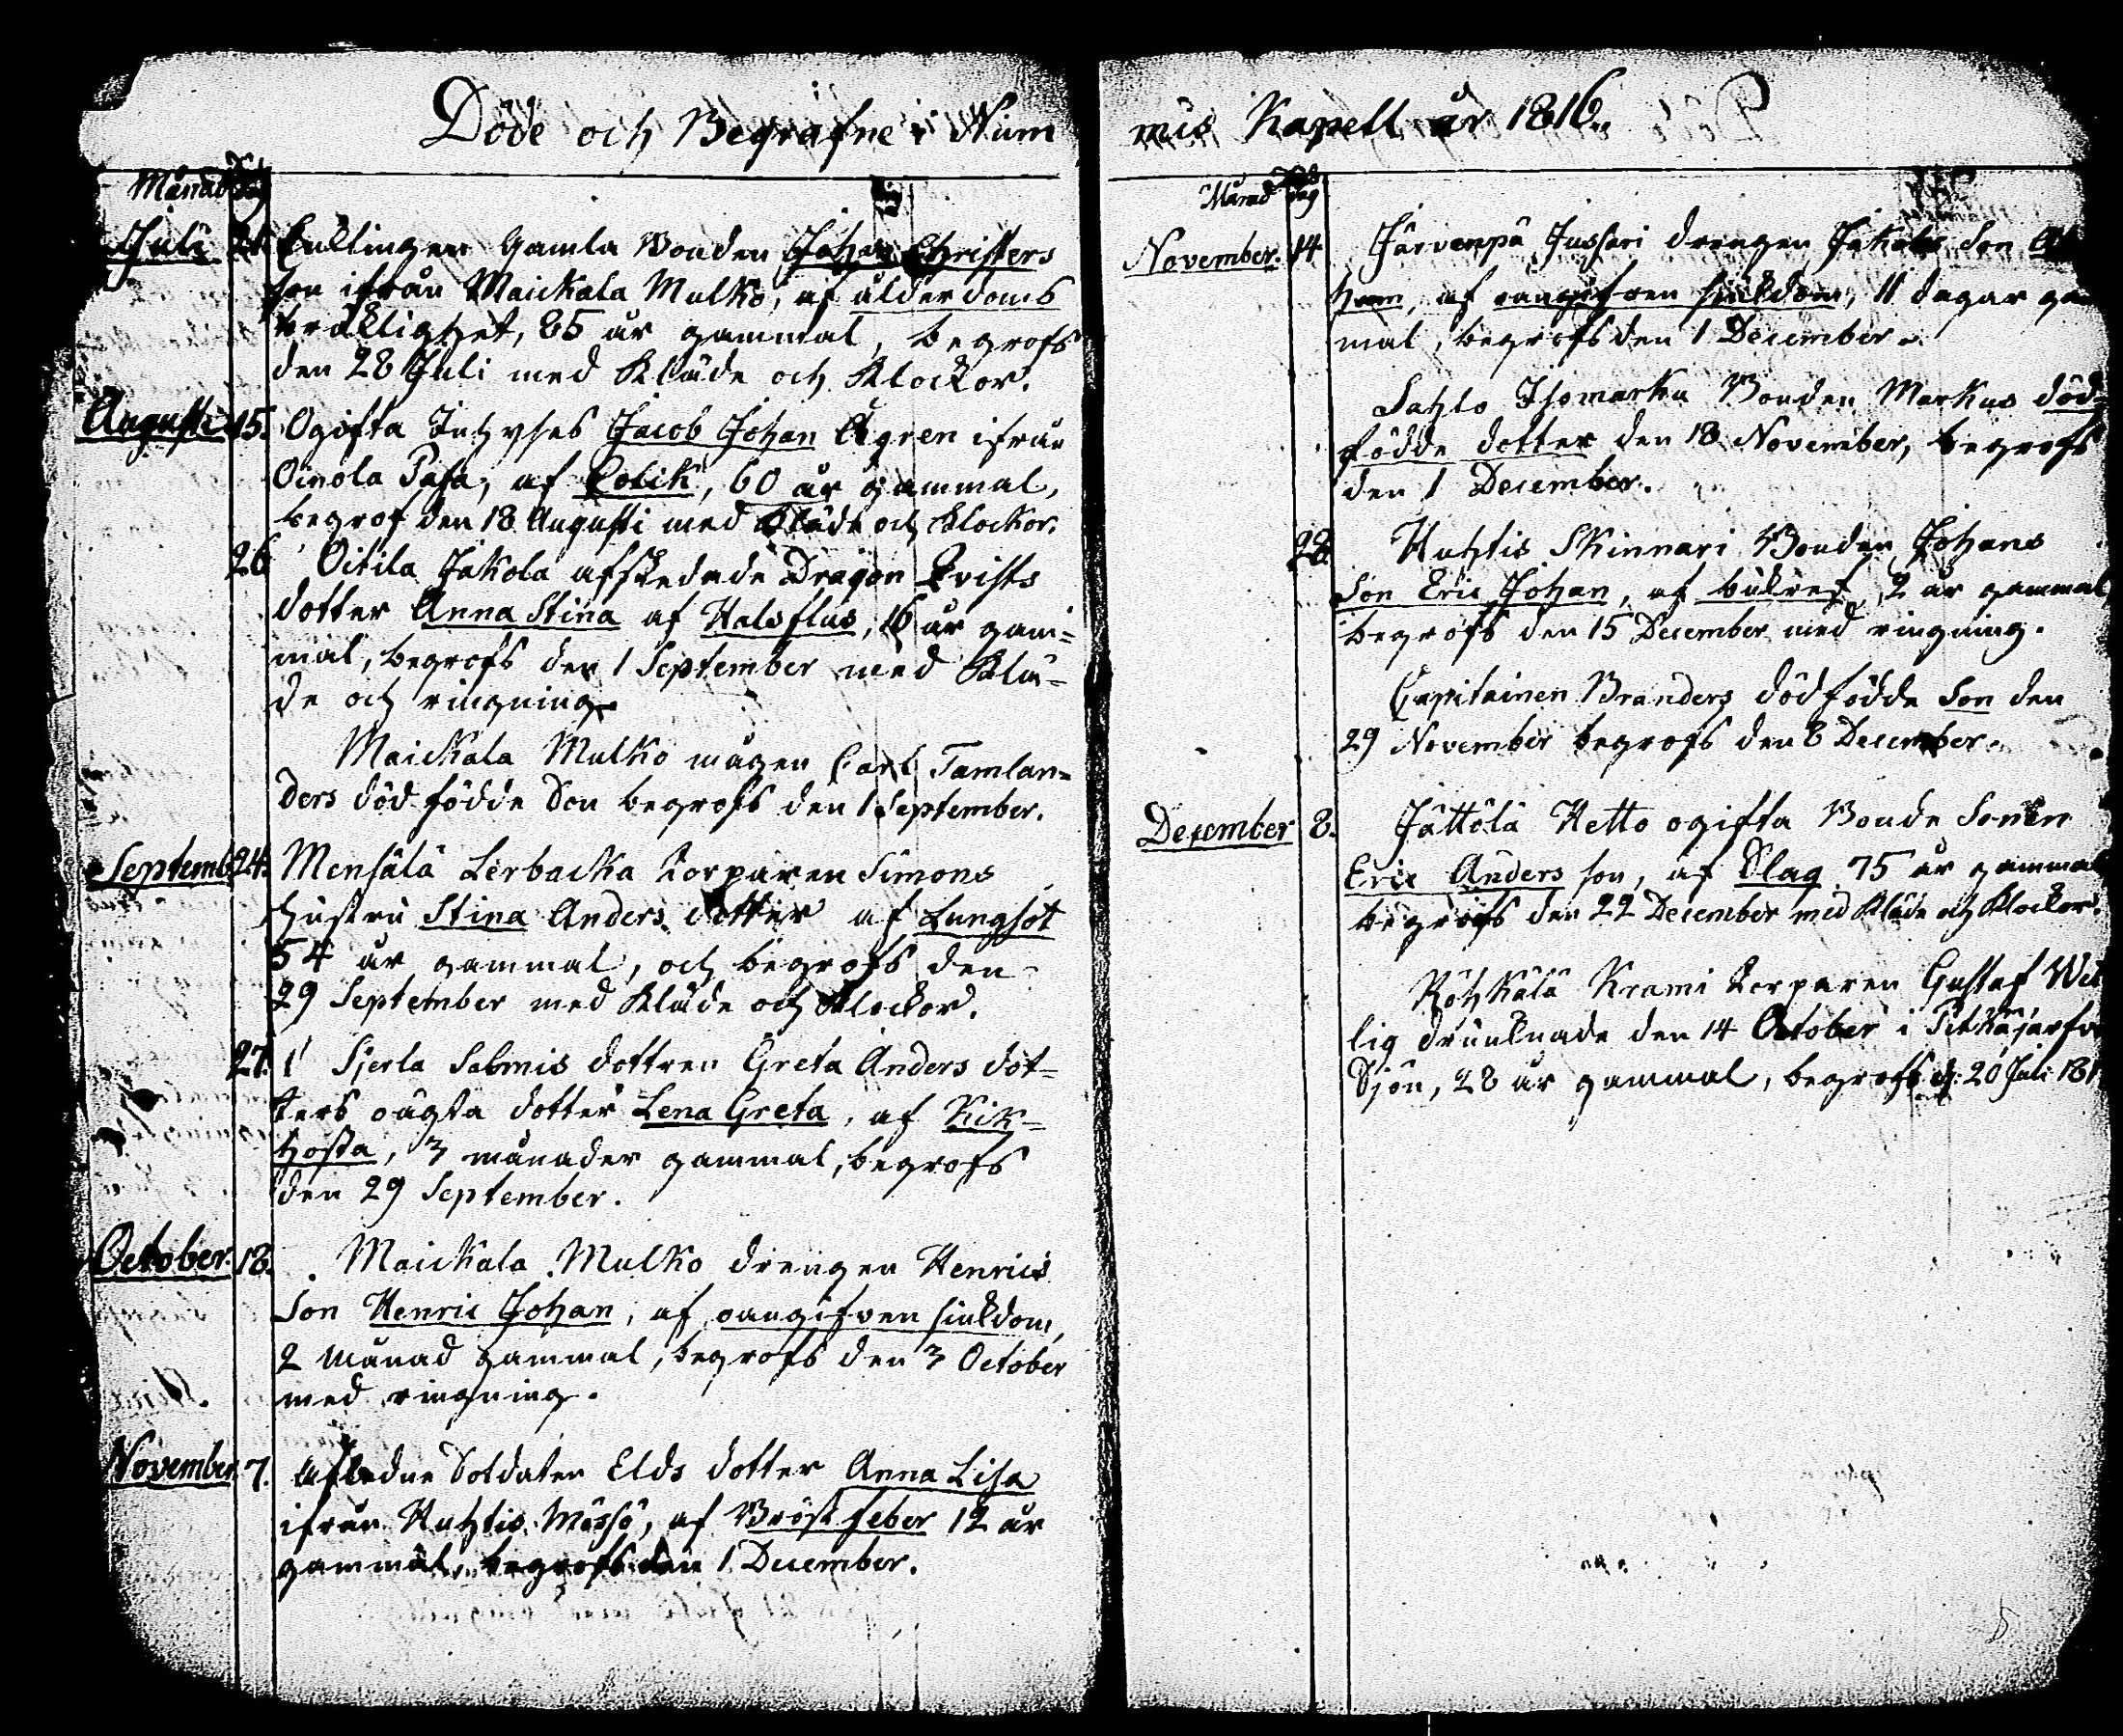 Döde och Begrafne i Num
Månad Dag
Juli 21. Enklingen Gamla Bonden Johan Christers
son ifrån Maickala Mulko, af ålderdoms
bräcklighet, 85 år gammal, begrofs
den 28 Juli med Kläde och Klockor.
Augusti 15. Ogifta Inhyses Jacob Johan Ågren ifrån
Oinola Pasa, af Colik, 60 år gammal,
begrof den 18 Augusti med Kläde och Klockor.
26 Oitila Jakola afskedade Dragon Qvists
dotter Anna Stina af Halsflus, 16 år gam=
mal, begrofs den 1 September med Klä=
de och ringning.
Maickala Mulko mågen Carl Tamlan=
ders död födde Son begrofs den 1 September.
Septemb. 24. Mensälä Lerbacka Torparen Simons
hustru Stina Anders dotter af Lungsot
54 år gammal, och begrofs den
29 September med Kläde och Klockor.
27. Sjerla Salmis dottren Greta Anders dot=
ters oägta dotter Lena Greta, af Kik=
hosta, 3 månader gammal, begrofs
den 29 September.
October. 18. Maickala Mulko drengen Henrics
Son Henric Johan, af oangifven siukdom,
2 Månad gammal, begrofs den 3 October
med ringning.
November 7. Aflidne Soldaten Elds dotter Anna Lisa
ifrån Huhtis Mössö, af Bröst feber 12 år
gammal, begrofs den 1 December.
mis Kapell år 1816.
Månad Dag
November. 14. Järvenpä Jussari drengen Jakobs Son
ham, af oangifven siukdom, 11 dagar gam
mal, begrofs den 1 December.
Sahlo Isomarku Bonden Markus död=
födde dotter den 18 November, begrofs
den 1 December.
28. Huhtis Skinnari Bonden Johans
Son Eric Johan, af bukref, 2 år gammal
begrofs den 15 December med ringning.
Capitainen Branders dödfödde Son den
29 November begrofs den 8 December.
December 8. Jättölä Hetto ogifta Bonde Sonen
Eric Anders son, af Slag 75 år gammal
begrofs den 22 December med Kläde och Klockor.
Röhkälä Krami Torparen Gustaf
lig drunknade den 14 October i Pitkäjärfvi
Sjön, 28 år gammal, begrofs d: 20 Juli 181